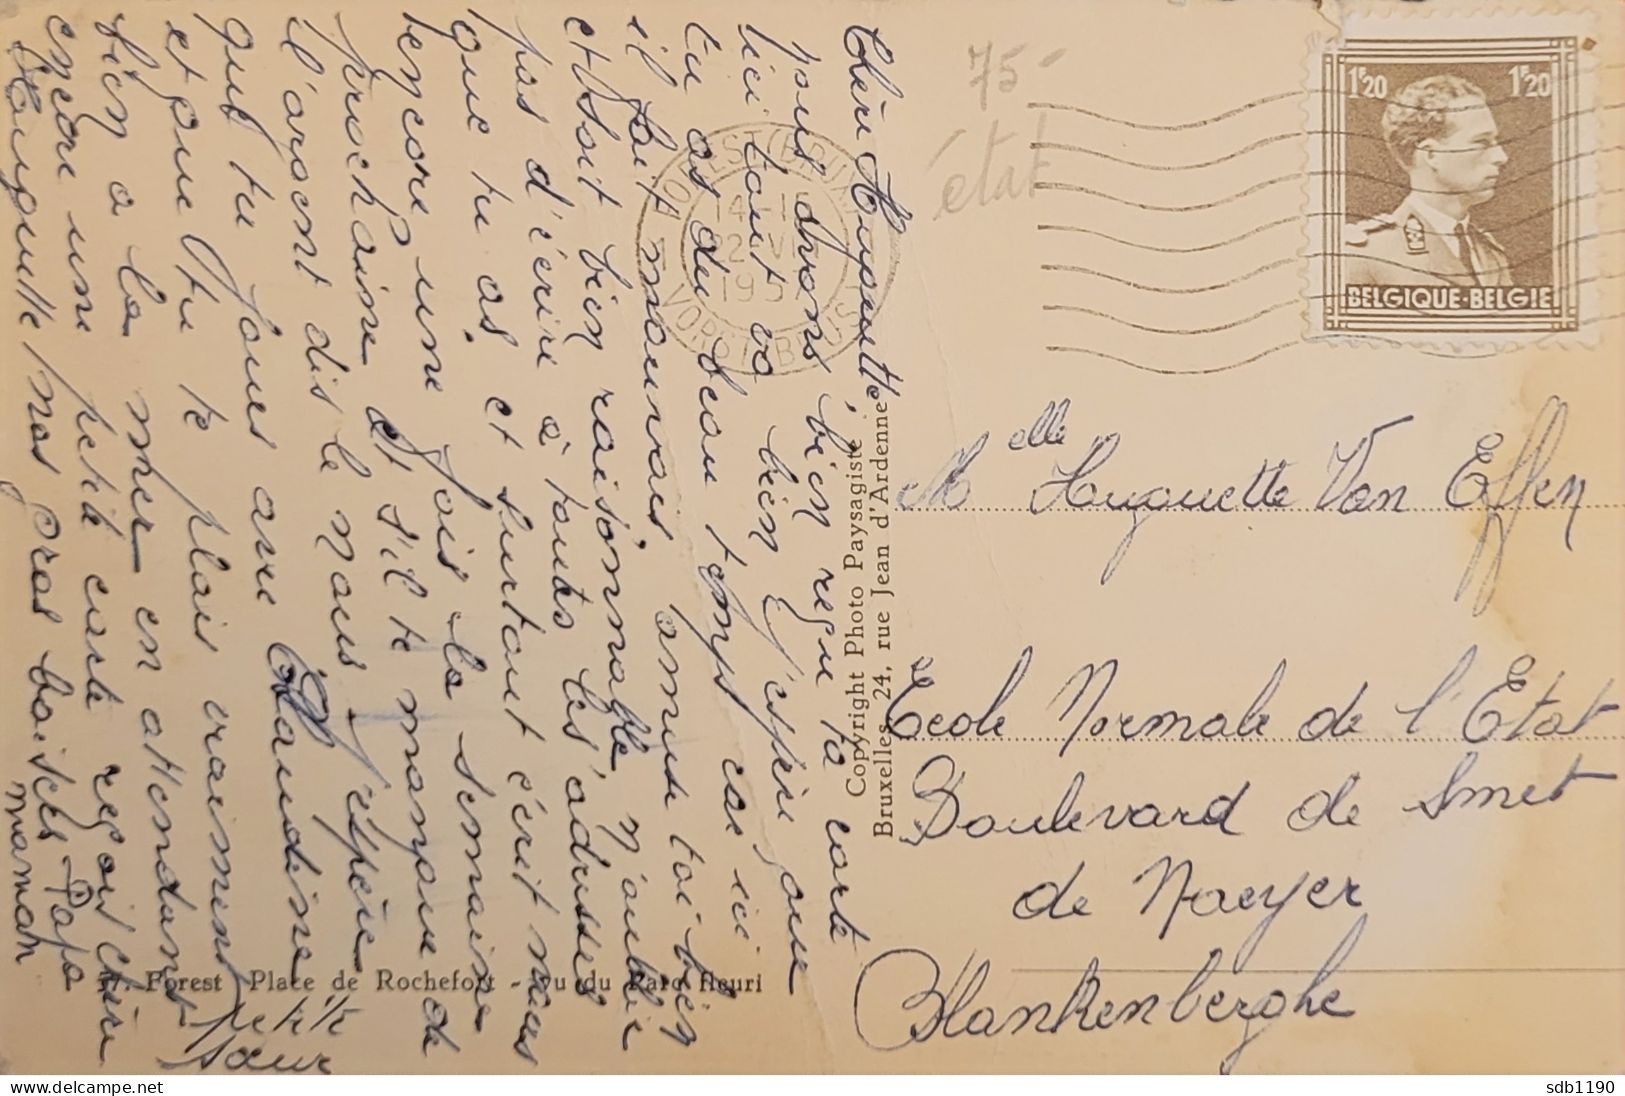 Chère Huguette,
nous avons bien reçu ta carte
ici tout va bien J'espère que
tu as du beau temps car ici
il fait mauvais, amuse toi bien
et soit bien raisonnable n'oublie
pas d'écrire à toutes les adresses
que tu as, et surtout écrit nous
encore une fois la semaine
prochaine et s'il te manque de
l'argent dis le nous J'espère
que tu joues avec Claudine
et que tu te plais vraiment
bien a la mer en attendant
encore une petite carte reçois chère
Huguette nos gros baisers Papa
maman
petite
sœur
75-
état
FOREST (BRUX
VORST (BRUS
1F20 1F20
BELGIQUE-BELGIE
Copyright Photo Paysagiste
Bruxelles 24, rue Jean d'Ardenne
Melle Huguette Van Effen
Ecole Normale de l'Etat
Boulevard de Smet
de Naeyer
Blankenberghe
Forest Place de Rochefort - Vu du Parc fleuri
sdb1190